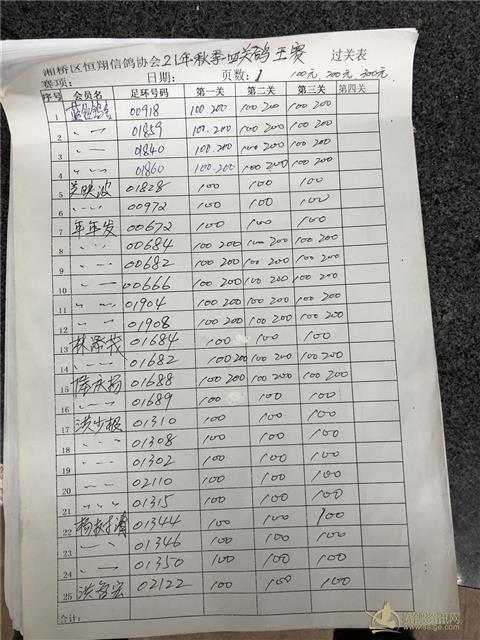 湘桥区恒翔信鸽协会21年秋季四关鸽王赛 过关表
赛项: 日期: 页数: 1 100元,200元,300元
序号 会员名 足环号码 第一关 第二关 第三关 第四关
1 00918 100.200 100 200 100 200
2 〃 01859 100.200 100 200 100 200
3 〃 01840 100.200 100 200 100 200
4 〃 01860 100.200 100 200 100 200
5 吴映波 01828 100 100 100
6 〃 00972 100 100 100
7 年年发 00672 100 100 100
8 〃 00684 100 200 100 200 100 200
9 〃 00682 100 200 100 200 100 200
10 〃 00666 100 200 100 200 100 200
11 〃 01904 100 200 100 200 100 200
12 〃 01908 100 200 100 200 100 200
13 林 01684 100 100 100
14 〃 01682 100 200 100 200 100 200
15 陈永扬 01688 100 200 100 200 100 200
16 〃 01689 100 100 100
17 洪少根 01310 100 100 100
18 〃 01308 100 100 100
19 〃 01302 100 100 100
20 〃 02110 100 100 100
21 〃 01315 100 100 100
22 杨 01344 100 100 100
23 〃 01346 100 100 100
24 〃 01350 100 100 100
25 洪 宏 02122 100 100 100
合计:
www.saige.com